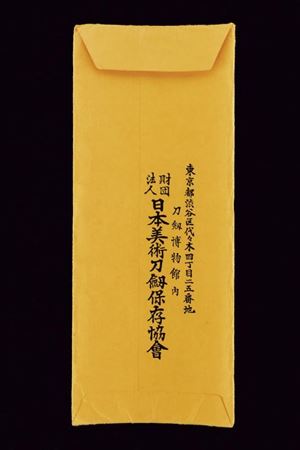 東京都渋谷区代々木四丁目二五番地
刀剱博物館内
財団法人
日本美術刀劔保存協會